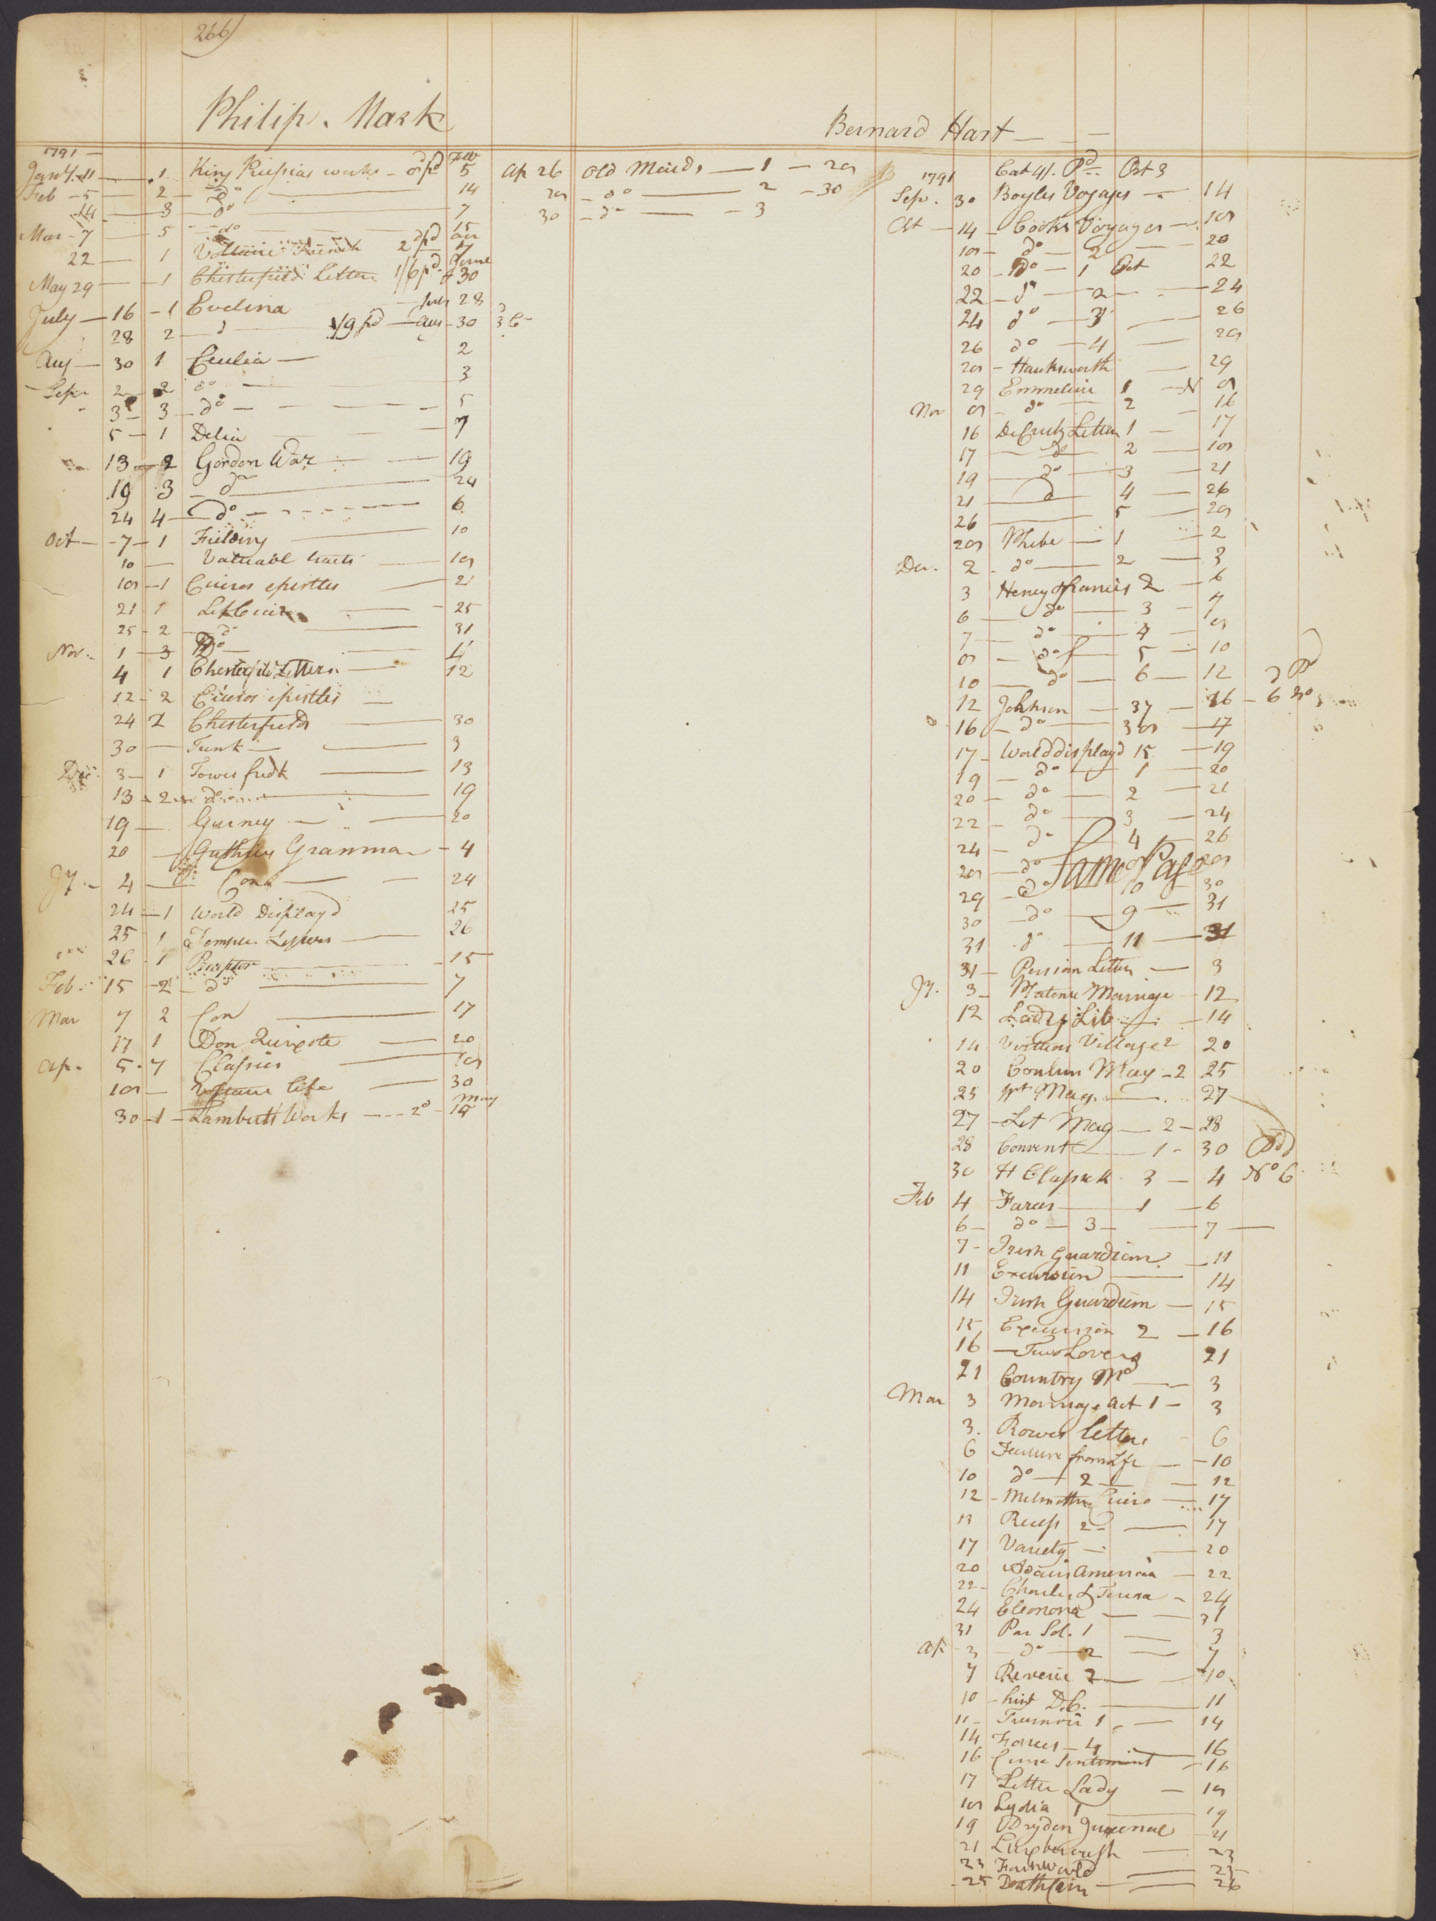 266
Philip. Mark
1791
Jany. 11 — 1 King Prussias works — pd Feb 5
Feb — 5 — 2 — do 14
14 — 3 — do 7
Mar — 7 — 5 — do 15
22 — 1 Voltaire French 2 pd
May 29 — 1 Chesterfield Letters 1/6 pd June 30
July — 16 — 1 Evelina July 28
28 2 — d 1/9 pd — Aug — 30
Aug — 30 1 Cecilia — 2
Sepr 2 — 2 do — 3
3 — 3 — do — 5
5 — 1 Delia 7
13 — 2 Gordon War — 19
19 3 — do 24
24 4 — do — 6
Oct — 7 — 1 Fielding 10
10 — Valuable tracts 18
18 — 1 Ciceros epistles 21
21 1 25
25 — 2 — do 31
Nov. 1 — 3 do — 4
4 1 Chesterfield Letters — 12
12 — 2 Ciceros epistles —
24 2 Chesterfields — 30
30 — Trenk — 3
Dec 3 — 1 Towers fredk — 13
13 — 2 19
19 — Gurney — 20
20 — Guthries Grammar — 4
Jy. — 4 — Con — 24
24 — 1 World Displayd 25
25 1 Temples Letters — 26
26 1 Preceptor — 15
Feb. 15 — 2 — do 7
Mar 7 2 Con — 17
17 1 Don Quixote — 20
Ap. 5 . 7 Classics 18
18 — Voltaire life — 30
30 — 1 — Lamberts Works — 2d — May 15
Ap 26 Old Maids — 1 — 28
28 — do — 2 — 30
30 — do — 3
Bernard Hart
Cat 4/. Pd — Oct 3
1791
Sepr. 30 Boyles Voyages — 14
Oct — 14 — Cooks Voyages — 18
18 — do — 2 — 20
20 — do — 1 Oct 22
22 — do — 2 — 24
24 do — 3 — 26
26 do — 4 — 28
28 — Hawksworth — 29
29 Emmeline 1 — N 8
Nov 8 — do — 2 — 16
16 DeCrutz Letters 1 — 17
17 — do 2 — 18
19 — do — 3 — 21
21 — d 4 — 26
26 — 5 — 28
28 Phebe — 1 — 2
Dec. 2 — do — 2 — 3
3 Henry & Francis 2 — 6
6 — do — 3 — 7
7 — do — 4 — 8
8 — do — 5 — 10
10 — do — 6 — 12
12 Johnson — 37 — 16 — 6
16 — do — 38 — 17
17 — World displayd 15 — 19
19 — do — 1 — 20
20 — do — 2 — 21
22 — do — 3 — 24
24 — do 4 — 26
28 — do 28
Same Page
29 — do 10 — 30
30 — do — 9 — 31
31 — do — 11 — 31
31 — Persian Letters — 3
Jy. 3 — Platonic Marriage — 12
12 Ladys Lib — 14
14 Virtuous Village 2 20
20 Mag — 2 25
25 Mag. — 27
27 — Let Mag — 2 — 28
28 Convent — 1 — 30
30 H Classick 3 — 4 No 6
Feb 4 Farces — 1 — 6
6 — do — 3 — 7 —
7 — Irish Guardian — 11
11 Excursion — 14
14 Irish Guardian — 15
15 Excursion 2 — 16
16 — Two Lovers 21
21 Country Md — 3
Mar 3 Marriage act 1 — 3
3. Rowes letters 6
6 from Life — 10
10 do — 2 — 12
12 — Melmoths Cicero — 17
13 Recess 2 — 17
17 Variety — 20
20 Adairs America — 22
22 — Charles & Teresa — 24
24 Eleonora — 31
31 Par Sol. 1 — 3
Ap 3 — do — 2 — 7
7 Reverie 2 — 10
10 — hist D.C. — 11
11 — 1 — 14
14 Farces — 4 — 16
16 Sentiment — 16
17 Letter Lady — 18
18 Lydia 1 — 19
19 Dryden Juvenal 21
21 Luxborough — 23
23 World — 25
25 Death Cain — 26